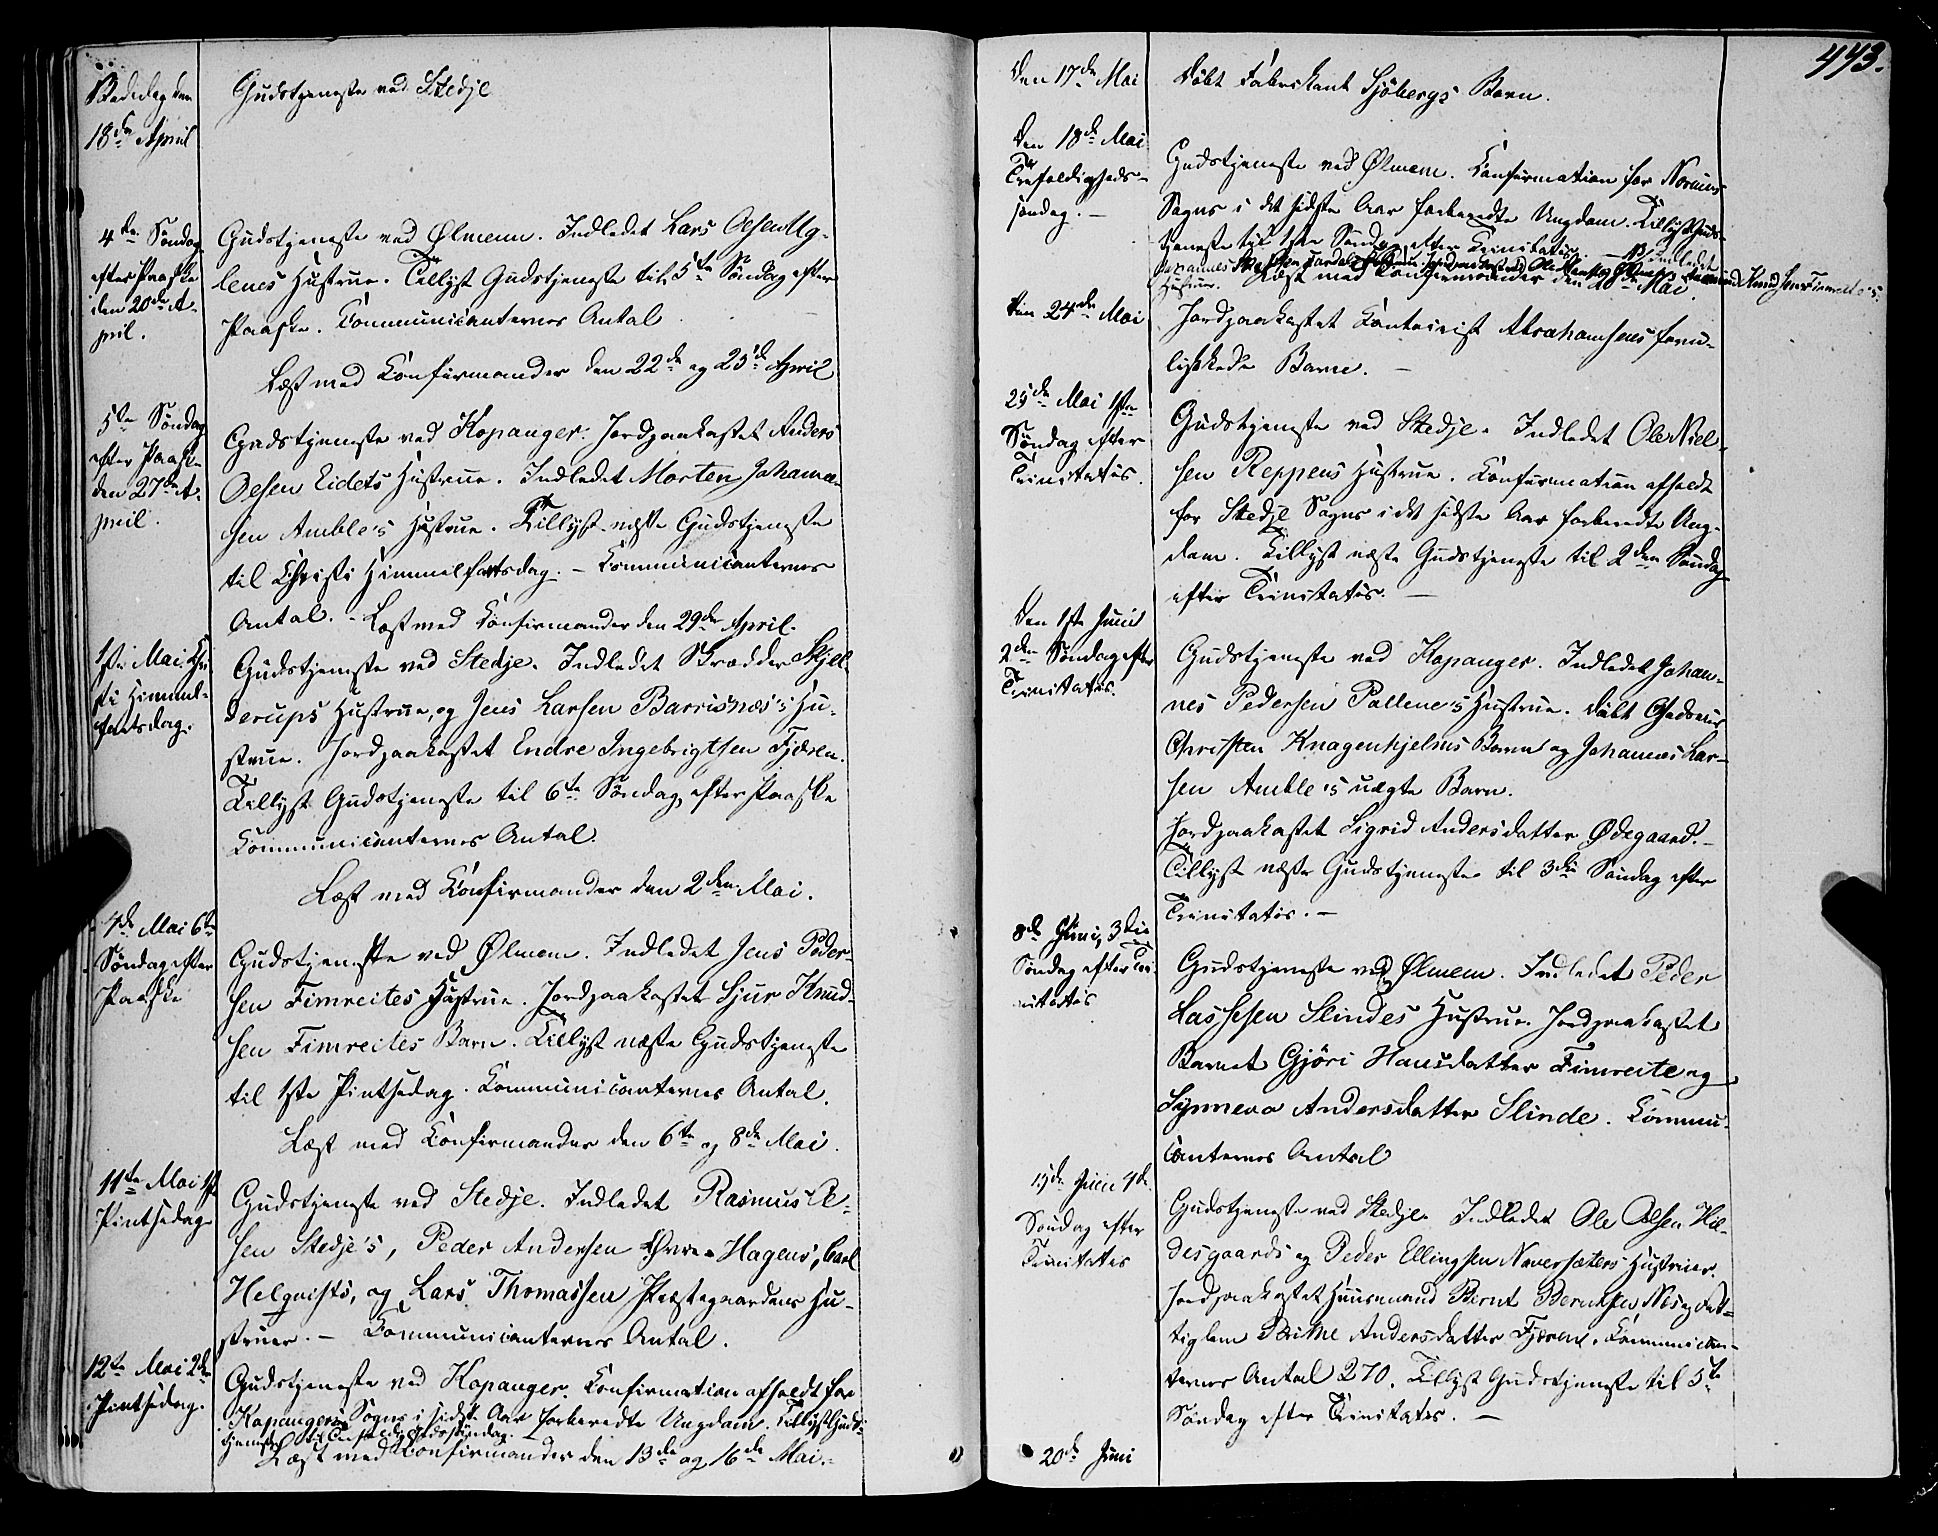 Bededag den
18de April
Gudstjeneste ved Stedje
4de Søndag
efter Paaske
den 20de A-
pril.
Gudstjeneste ved Ølmem. Indledet Lars Olsen Ug-
lenes Hustrue. Tillyst Gudstjeneste til 5te Søndag efter
Paaske. Communicanternes Antal
Læst med Confirmander den 22de og 25de April
5te Søndag
efter Paaske
den 27de A-
pril.
Gudstjeneste ved Kopanger. Jordpaakastet Anders
Olsen Eidets Hustrue. Indledet Morten Johanne-
sen Amble's Hustrue. Tillyst næste Gudstjeneste
til Christi Himmelfartsdag. - Communicanternes
Antal. - Læst med Confirmander den 29de April.
1ste Mai Chri-
sti Himmel-
fartsdag.
Gudstjeneste ved Stedje. Indledet Skrædder Skjel-
derups Hustrue, og Jens Larsen Barrisnæs's Hu-
strue. Jordpaakastet Endre Ingebrigtsen Fjæren.
Tillyst Gudstjeneste til 6te Søndag efter Paaske
Communicanternes Antal.
Læst med Confirmander den 2den Mai.
4de Mai 6te
Søndag efter
Paaske
Gudstjeneste ved Ølmem. Indledet Jens Peder-
sen Fimreites Hustrue. Jordpaakastet Sjur Knud-
sen Fimreites Barn. Tillyst næste Gudstjeneste
til 1ste Pintsedag. Communicanternes Antal.
Læst med Confirmander den 6te og 8de Mai.
11te Mai 1ste
Pintsedag
Gudstjeneste ved Stedje. Indledet Rasmus Ol-
sen Stedje's, Peder Andersen Hagens, Carl
Helquists, og Lars Thomassen Præstegaardens Hu-
struer. - Communicanternes Antal.
12te Mai 2den
Pintsedag.
Gudstjeneste ved Kopanger. Confirmation afholdt for
Kopangers Sogns i sidste Aar forberedte Ungdom. Tillyst Guds-
tjeneste til Trefoldighedssøndag.
Læst med Confirmander den 13de og 16de Mai.
443.
Den 17de Mai
Døbt Fabrikant Sjöbergs Barn.
Den 18de Mai
Trefoldigheds-
søndag. -
Gudstjeneste ved Ølmem. Confirmation for Norums
Sogns i det sidste Aar forberedte Ungdom. Tillyst Guds-
tjeneste til 1ste Søndag efter Trinitatis. - Indledet
Johannes
Hustrue. Læst med Confirmander den 20de Mai.
Den 24de Mai
Jordpaakastet Contorist Abrahamsens foru-
lykkede Barn. -
25de Mai 1ste
Søndag efter
Trinitatis.
Gudstjeneste ved Stedje. Indledet Ole Niel-
sen Reppens Hustrue. Confirmation afholdt
for Stedje Sogns i det sidste Aar forberedte Ung-
dom. Tillyst næste Gudstjeneste til 2den Søndag
efter Trinitatis. -
Den 1ste Juni
2den Søndag efter
Trinitatis.
Gudstjeneste ved Kopanger. Indledet Johan-
nes Pedersen Pallene's Hustrue. Døbt Gadsens
Christen Knagenhjelms Barn og Johannes Lar-
sen Amble's uægte Barn.
Jordpaakastet Sigrid Andersdatter Ødegaard. -
Tillyst næste Gudstjeneste til 3die Søndag efter
Trinitatis. -
8de Juni, 3die
Søndag efter Tri-
nitatis
Gudstjeneste ved Ølmem. Indledet Peder
Lassesen Slindes Hustrue. Jordpaakastet
Barnet Gjøri Hansdatter Fimreite og
Synneva Andersdatter Slinde. Commu-
canternes Antal
15de Juni 4de
Søndag efter
Trinitatis
Gudstjeneste ved Stedje. Indledet Ole Olsen Hil-
desgaards og Peder Ellingsen Naversæters Hustruer.
Jordpaakastet Huusmand Bernt Berntsen Næs og Fat-
tiglem Brithe Andersdatter Fjæren. Communican-
ternes Antal 270. Tillyst Gudstjeneste til 5te
Søndag efter Trinitatis. -
20de Juni